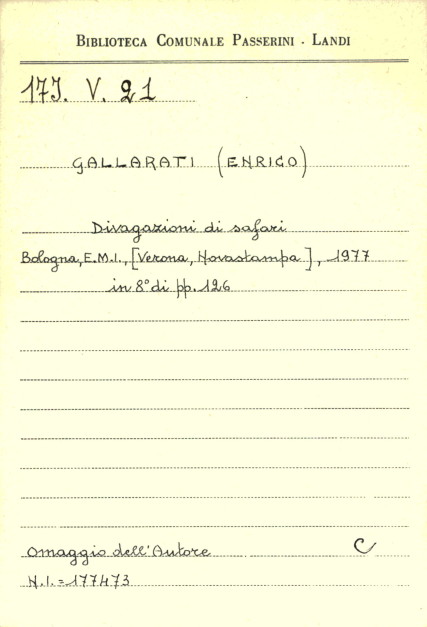 BIBLIOTECA COMUNALE PASSERINI - LANDI
17J. V. 21
GALLARATI (ENRICO)
Divagazioni di safari
Bologna, E.M.I., [Verona, Novastampa], 1977
in 8° di pp. 126
Omaggio dell'Autore C
N.I. = 177473